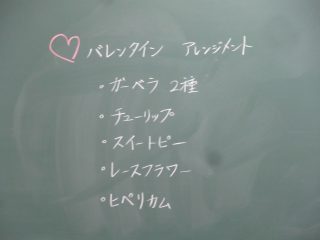 ♡ バレンタイン アレンジメント
・ガーベラ 2種
・チューリップ
・スイートピー
・レースフラワー
・ヒペリカム